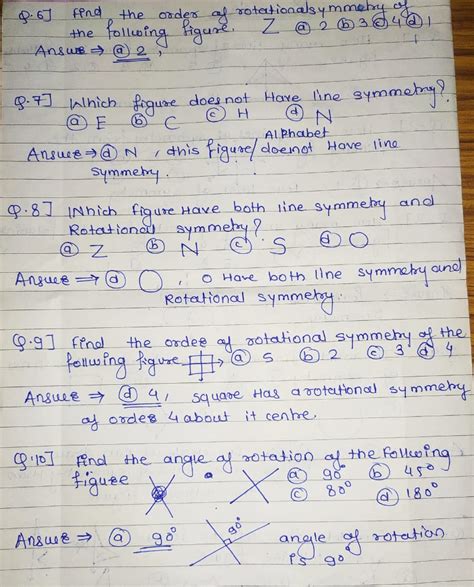 Q.6] Find the order of rotational symmetry of
the following figure. Z ⓐ 2 ⓑ 3 ⓒ 4 ⓓ 1
Answer ⇒ ⓐ 2,
Q.7] Which figure does not Have line symmetry?
ⓐ E ⓑ C ⓒ H ⓓ N
Alphabet
Answer → ⓓ N, this figure/doesnot Have line
symmetry.
Q.8] Which figure Have both line symmetry and
Rotational symmetry?
ⓐ Z ⓑ N ⓒ S ⓓ O
Answer ⇒ ⓓ O, O Have both line symmetry and
Rotational symmetry.
Q.9] Find the order of rotational symmetry of the
following figure → ⓐ 5 ⓑ 2 ⓒ 3 ⓓ 4
Answer ⇒ ⓓ 4, square Has a rotational symmetry
of order 4 about it centre.
Q.10] Find the angle of rotation of the Following
figure ⓐ 90° ⓑ 45°
ⓒ 80° ⓓ 180°
Answer ⇒ ⓐ 90° 90° angle of rotation
is 90°